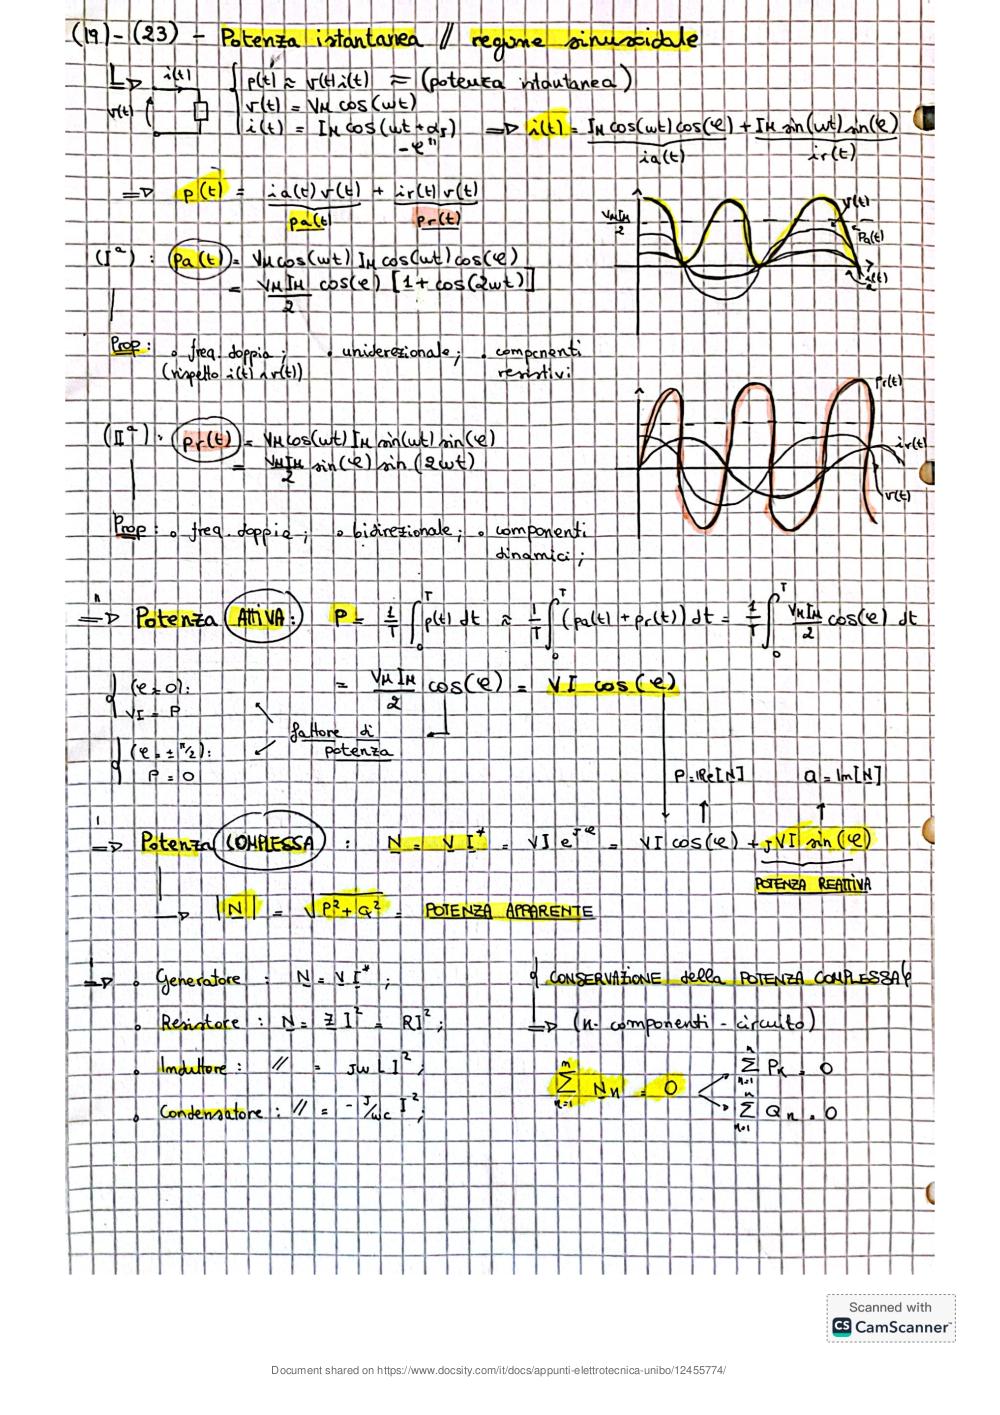 (19)-(23) - Potenza istantanea // regime sinusoidale
i(t)
v(t)
p(t) ≈ v(t)i(t) ≈ (potenza istantanea)
v(t) = VM cos(ωt)
i(t) = IM cos(ωt + αI) ⇒ i(t) = IM cos(ωt) cos(φ) + IM sin(ωt) sin(φ)
-φ"
ia(t) ir(t)
⇒ p(t) = ia(t) v(t) + ir(t) v(t)
pa(t) pr(t)
VM IM / 2
v(t)
pa(t)
i(t)
(Iª): pa(t) = VM cos(ωt) IM cos(ωt) cos(φ)
= VM IM / 2 cos(φ) [1 + cos(2ωt)]
Prop: • freq. doppia; • unidirezionale; • componenti
(rispetto i(t) ∧ v(t)) resistivi
(IIª): pr(t) = VM cos(ωt) IM sin(ωt) sin(φ)
= VM IM / 2 sin(φ) sin(2ωt)
pr(t)
ir(t)
v(t)
Prop: • freq. doppia; • bidirezionale; • componenti
dinamici;
⇒ Potenza ATTIVA: P = 1/T ∫₀ᵀ p(t) dt ≈ 1/T ∫₀ᵀ (pa(t) + pr(t)) dt = 1/T ∫₀ᵀ VM IM / 2 cos(φ) dt
= VM IM / 2 cos(φ) = VI cos(φ)
(φ = 0):
VI = P
fattore di
potenza
(φ = ± π/2):
P = 0
P = Re[N] Q = Im[N]
⇒ Potenza COMPLESSA: N = V I* = VI e^jφ = VI cos(φ) + jVI sin(φ)
POTENZA REATTIVA
|N| = √(P² + Q²) = POTENZA APPARENTE
⇒ • Generatore : N = V I* ;
• Resistore : N = Z I² = RI² ;
• Induttore : // = jωL I² ;
• Condensatore : // = - j/ωC I² ;
CONSERVAZIONE della POTENZA COMPLESSA
⇒ (n. componenti - circuito)
n Σ n=1 Nn = 0
n Σ n=1 Pn = 0
n Σ n=1 Qn = 0
Scanned with
CS CamScanner
Document shared on https://www.docsity.com/it/docs/appunti-elettrotecnica-unibo/12455774/